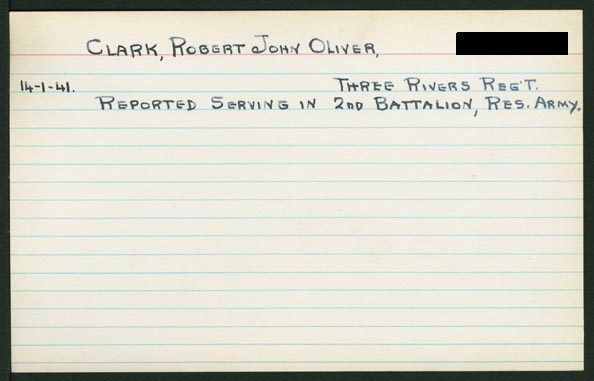 CLARK, ROBERT JOHN OLIVER,
14-1-41. THREE RIVERS REG'T.
REPORTED SERVING IN 2ND BATTALION, RES. ARMY.